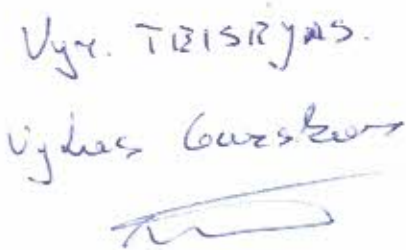 Vyr. TEISĖJAS.
Vykas Gurskas